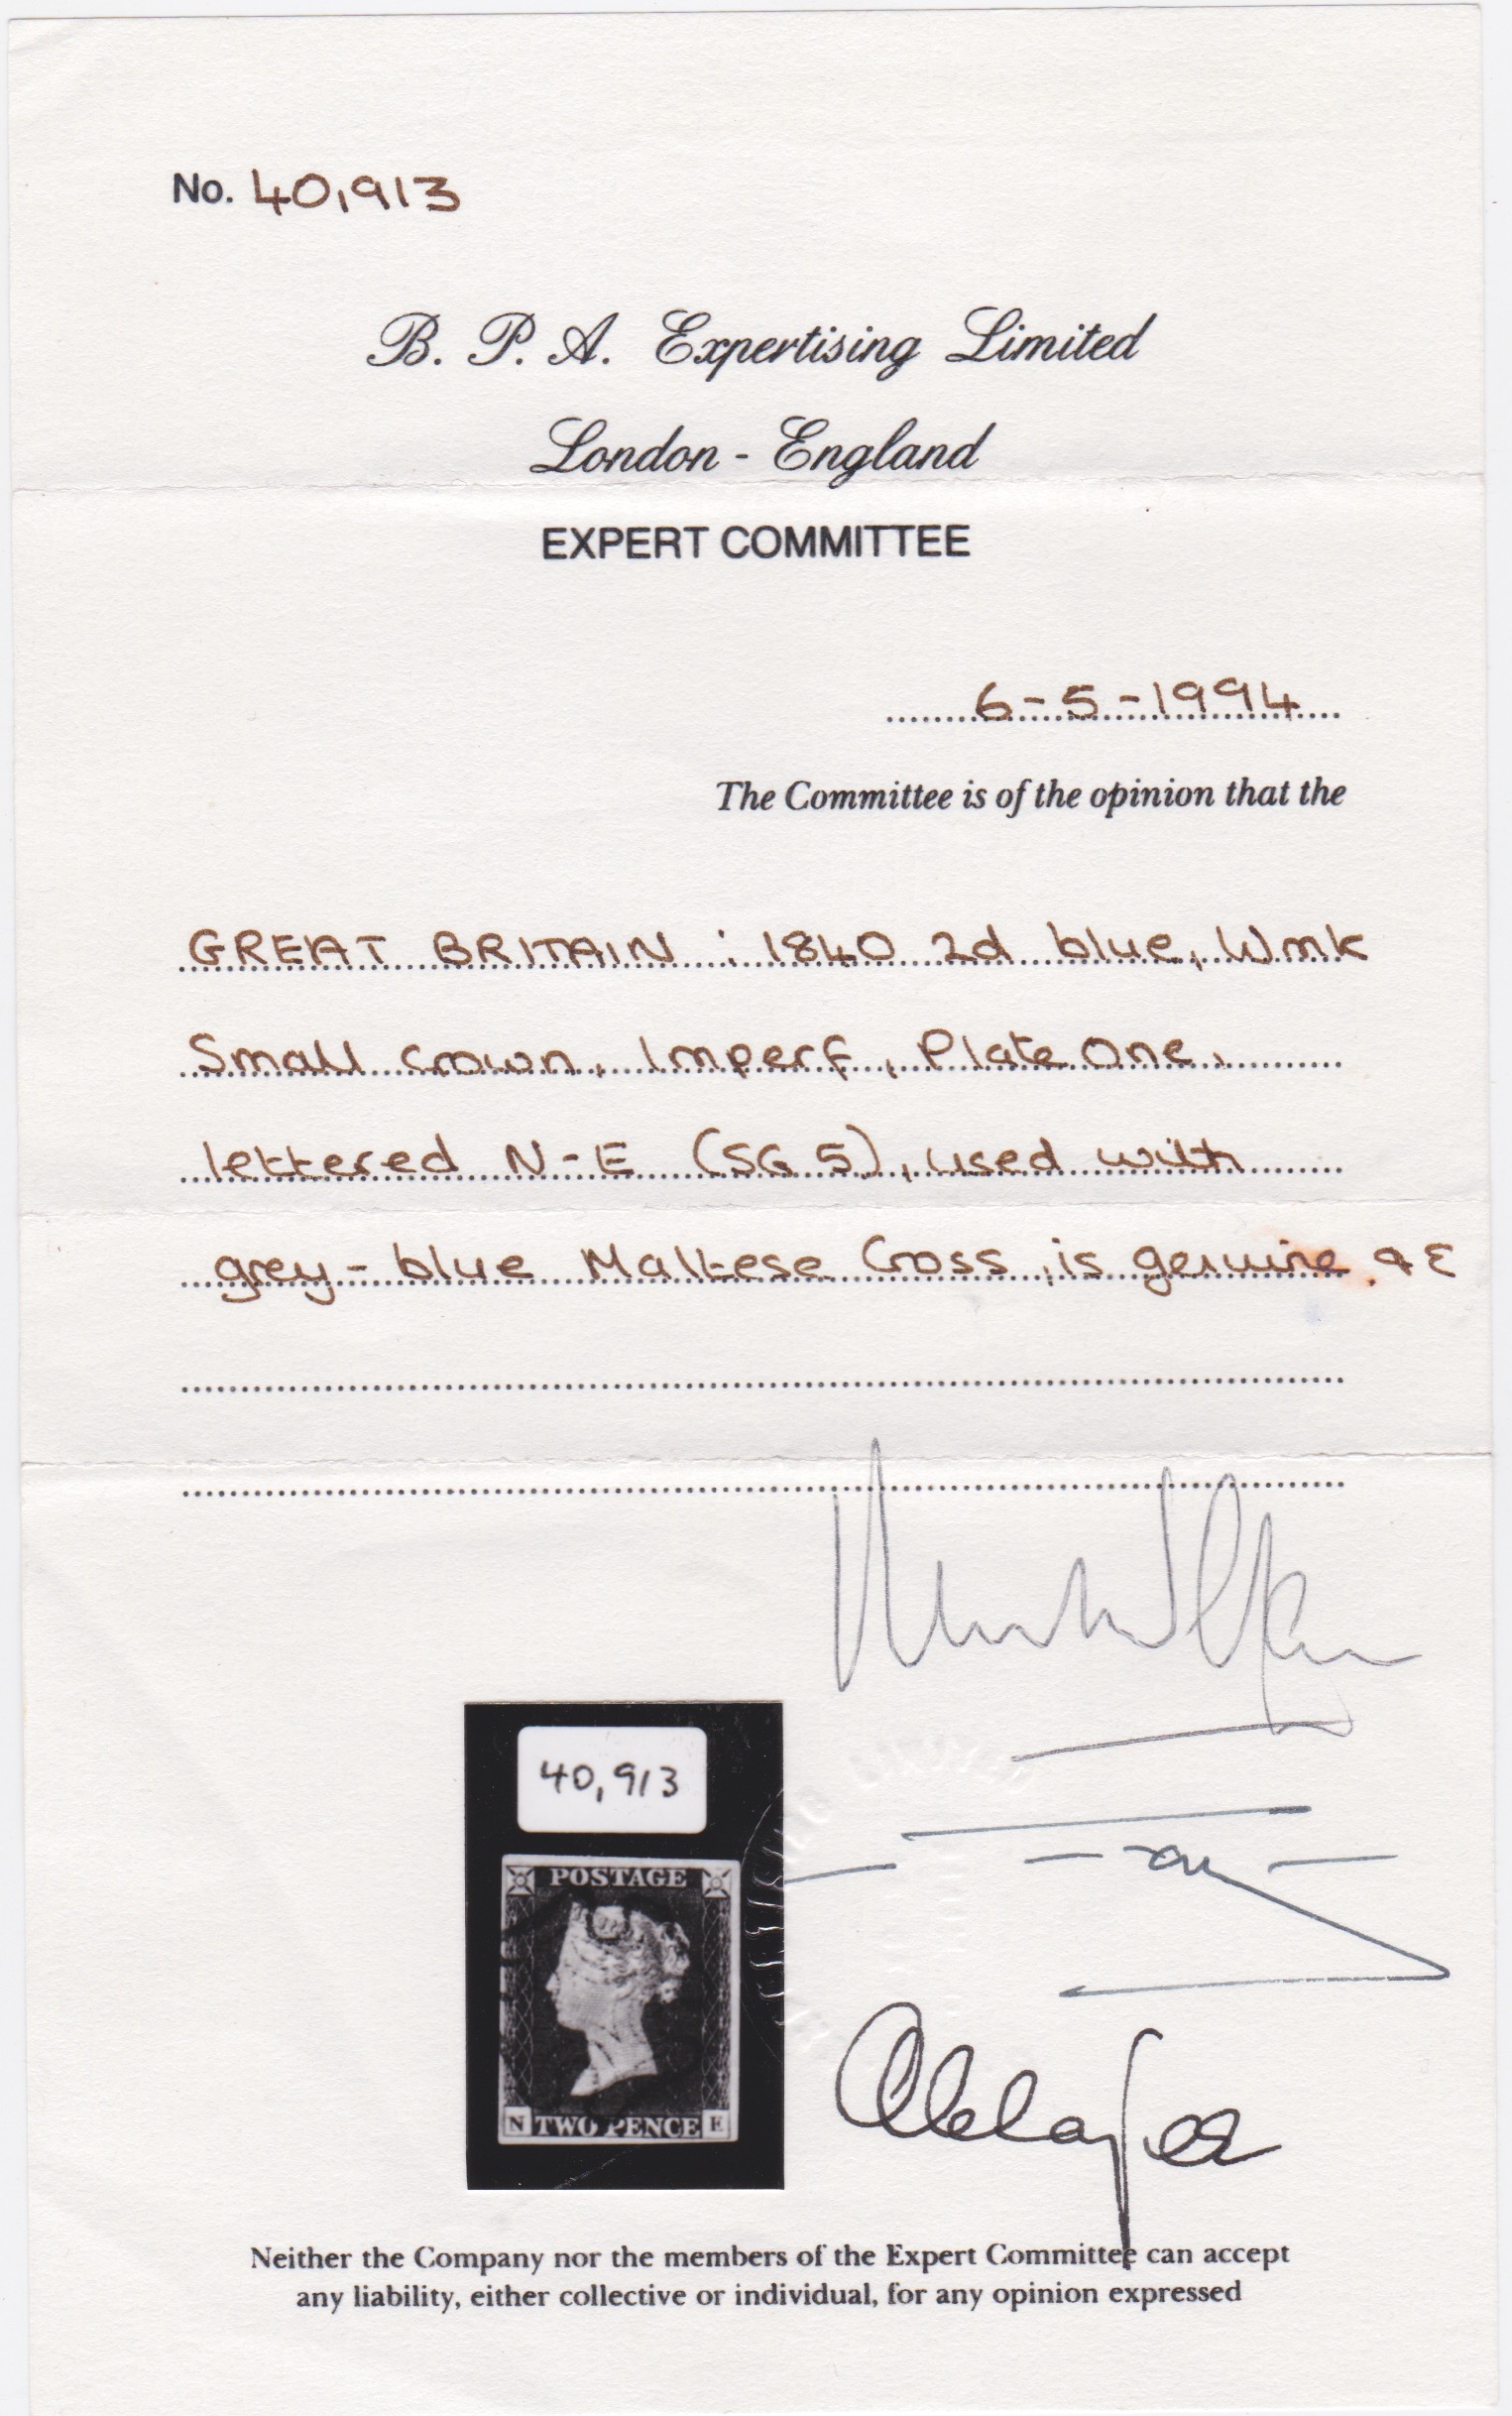 No. 40,913
B. P. A. Expertising Limited
London - England
EXPERT COMMITTEE
6-5-1994
The Committee is of the opinion that the
GREAT BRITAIN : 1840 2d blue, Wmk
Small crown, Imperf, Plate One,
lettered N-E (SG 5), used with
grey-blue Maltese Cross, is genuine.
40,913
POSTAGE
N TWO PENCE E
Neither the Company nor the members of the Expert Committee can accept
any liability, either collective or individual, for any opinion expressed